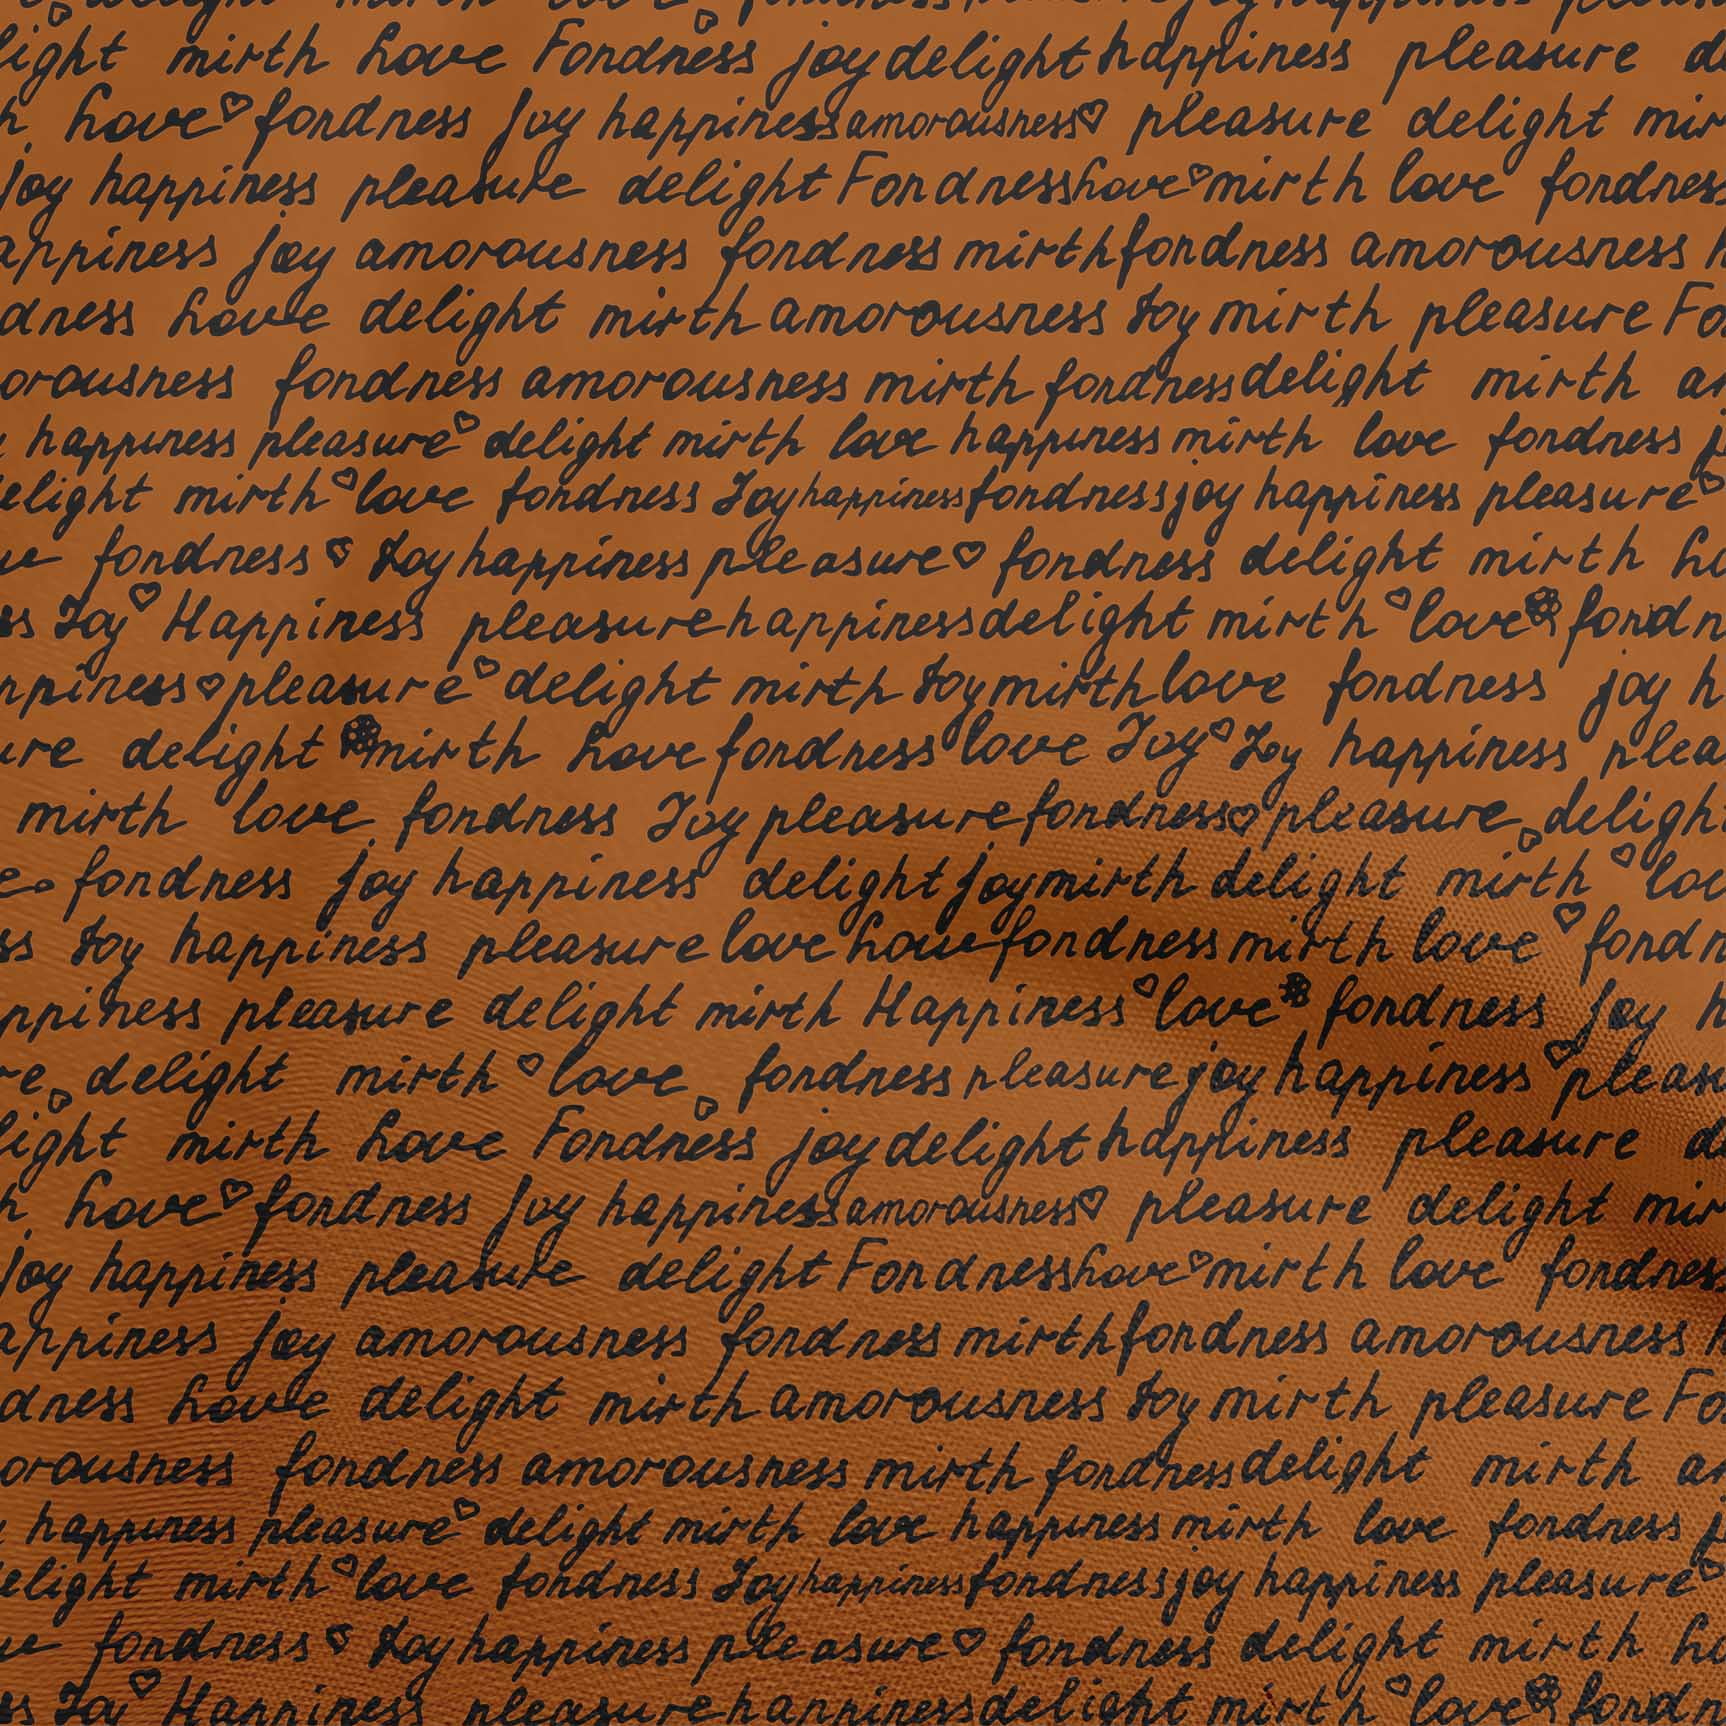 delight mirth love fondness joy happiness
light mirth Love Fondness joy delight happiness pleasure
Love fondness Joy happiness amorousness pleasure delight
joy happiness pleasure delight Fondness Love mirth love fondness
happiness joy amorousness fondness mirth fondness amorousness
dness Love delight mirth amorousness Joy mirth pleasure
orousness fondness amorousness mirth fondness delight mirth
happiness pleasure delight mirth love happiness mirth love fondness
elight mirth love fondness Joy happiness fondness joy happiness pleasure
fondness Joy happiness pleasure fondness delight mirth
ss Joy Happiness pleasure happiness delight mirth love fondn
ppiness pleasure delight mirth Joy mirth love fondness joy
ure delight mirth Love fondness love Joy Joy happiness plea
mirth love fondness Joy pleasure fondness pleasure delight
e fondness joy happiness delight joy mirth delight mirth lov
ss Joy happiness pleasure love Love fondness mirth love fondn
ppiness pleasure delight mirth Happiness love fondness Joy
re delight mirth love fondness pleasure joy happiness pleasu
light mirth Love Fondness joy delight happiness pleasure
Love fondness Joy happiness amorousness pleasure delight
joy happiness pleasure delight Fondness Love mirth love fondness
appiness joy amorousness fondness mirth fondness amorousness
dness Love delight mirth amorousness Joy mirth pleasure
orousness fondness amorousness mirth fondness delight mirth
happiness pleasure delight mirth love happiness mirth love fondness
elight mirth love fondness Joy happiness fondness joy happiness pleasure
fondness Joy happiness pleasure fondness delight mirth
ss Joy Happiness pleasure happiness delight mirth love fondn